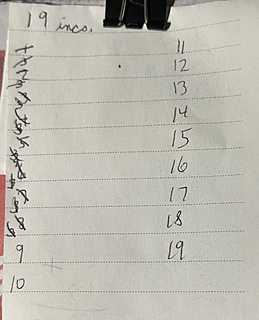 19 incs.
11
12
13
14
15
16
17
18
9 19
10